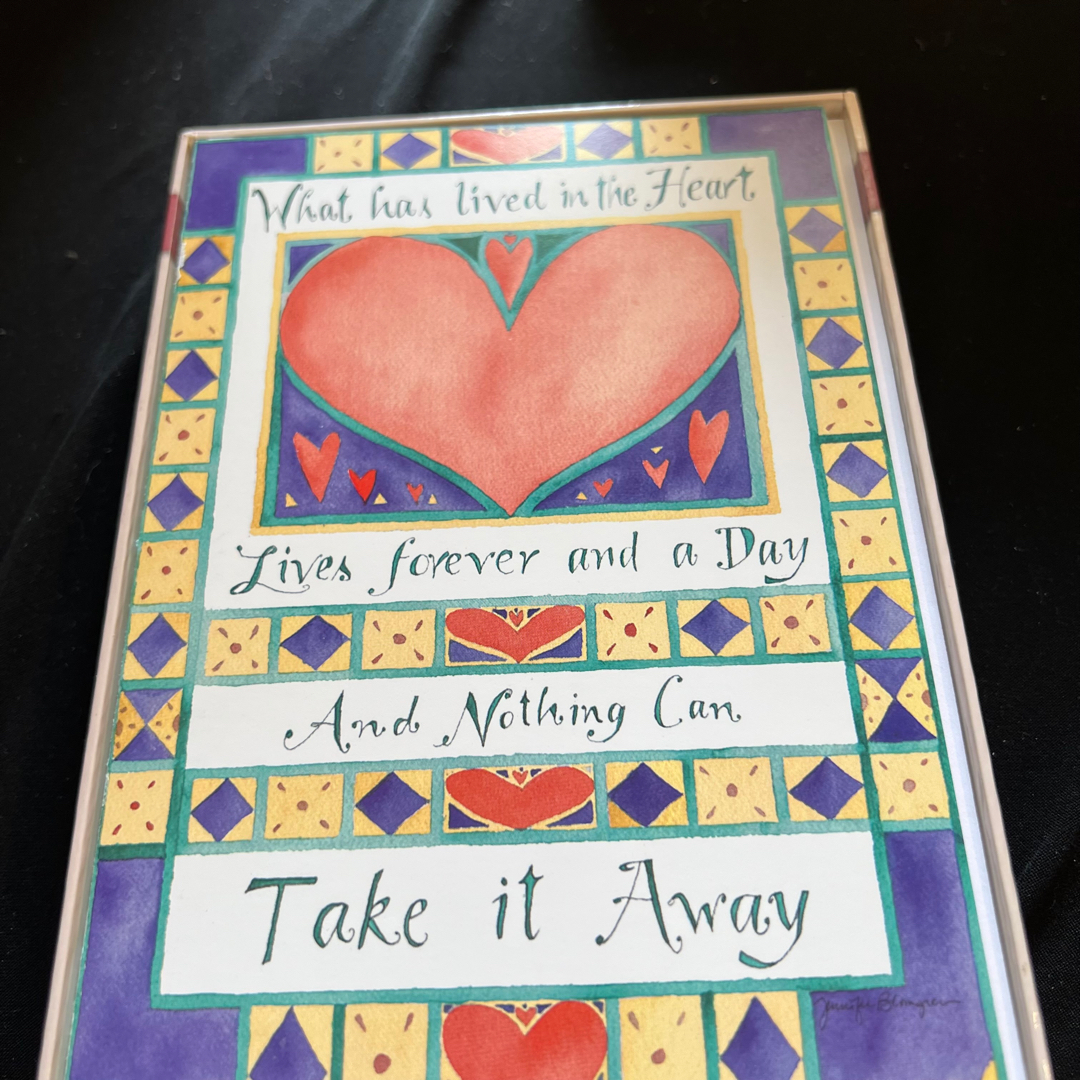 What has lived in the Heart
Lives forever and a Day
And Nothing Can
Take it Away
Jennifer Blomgren